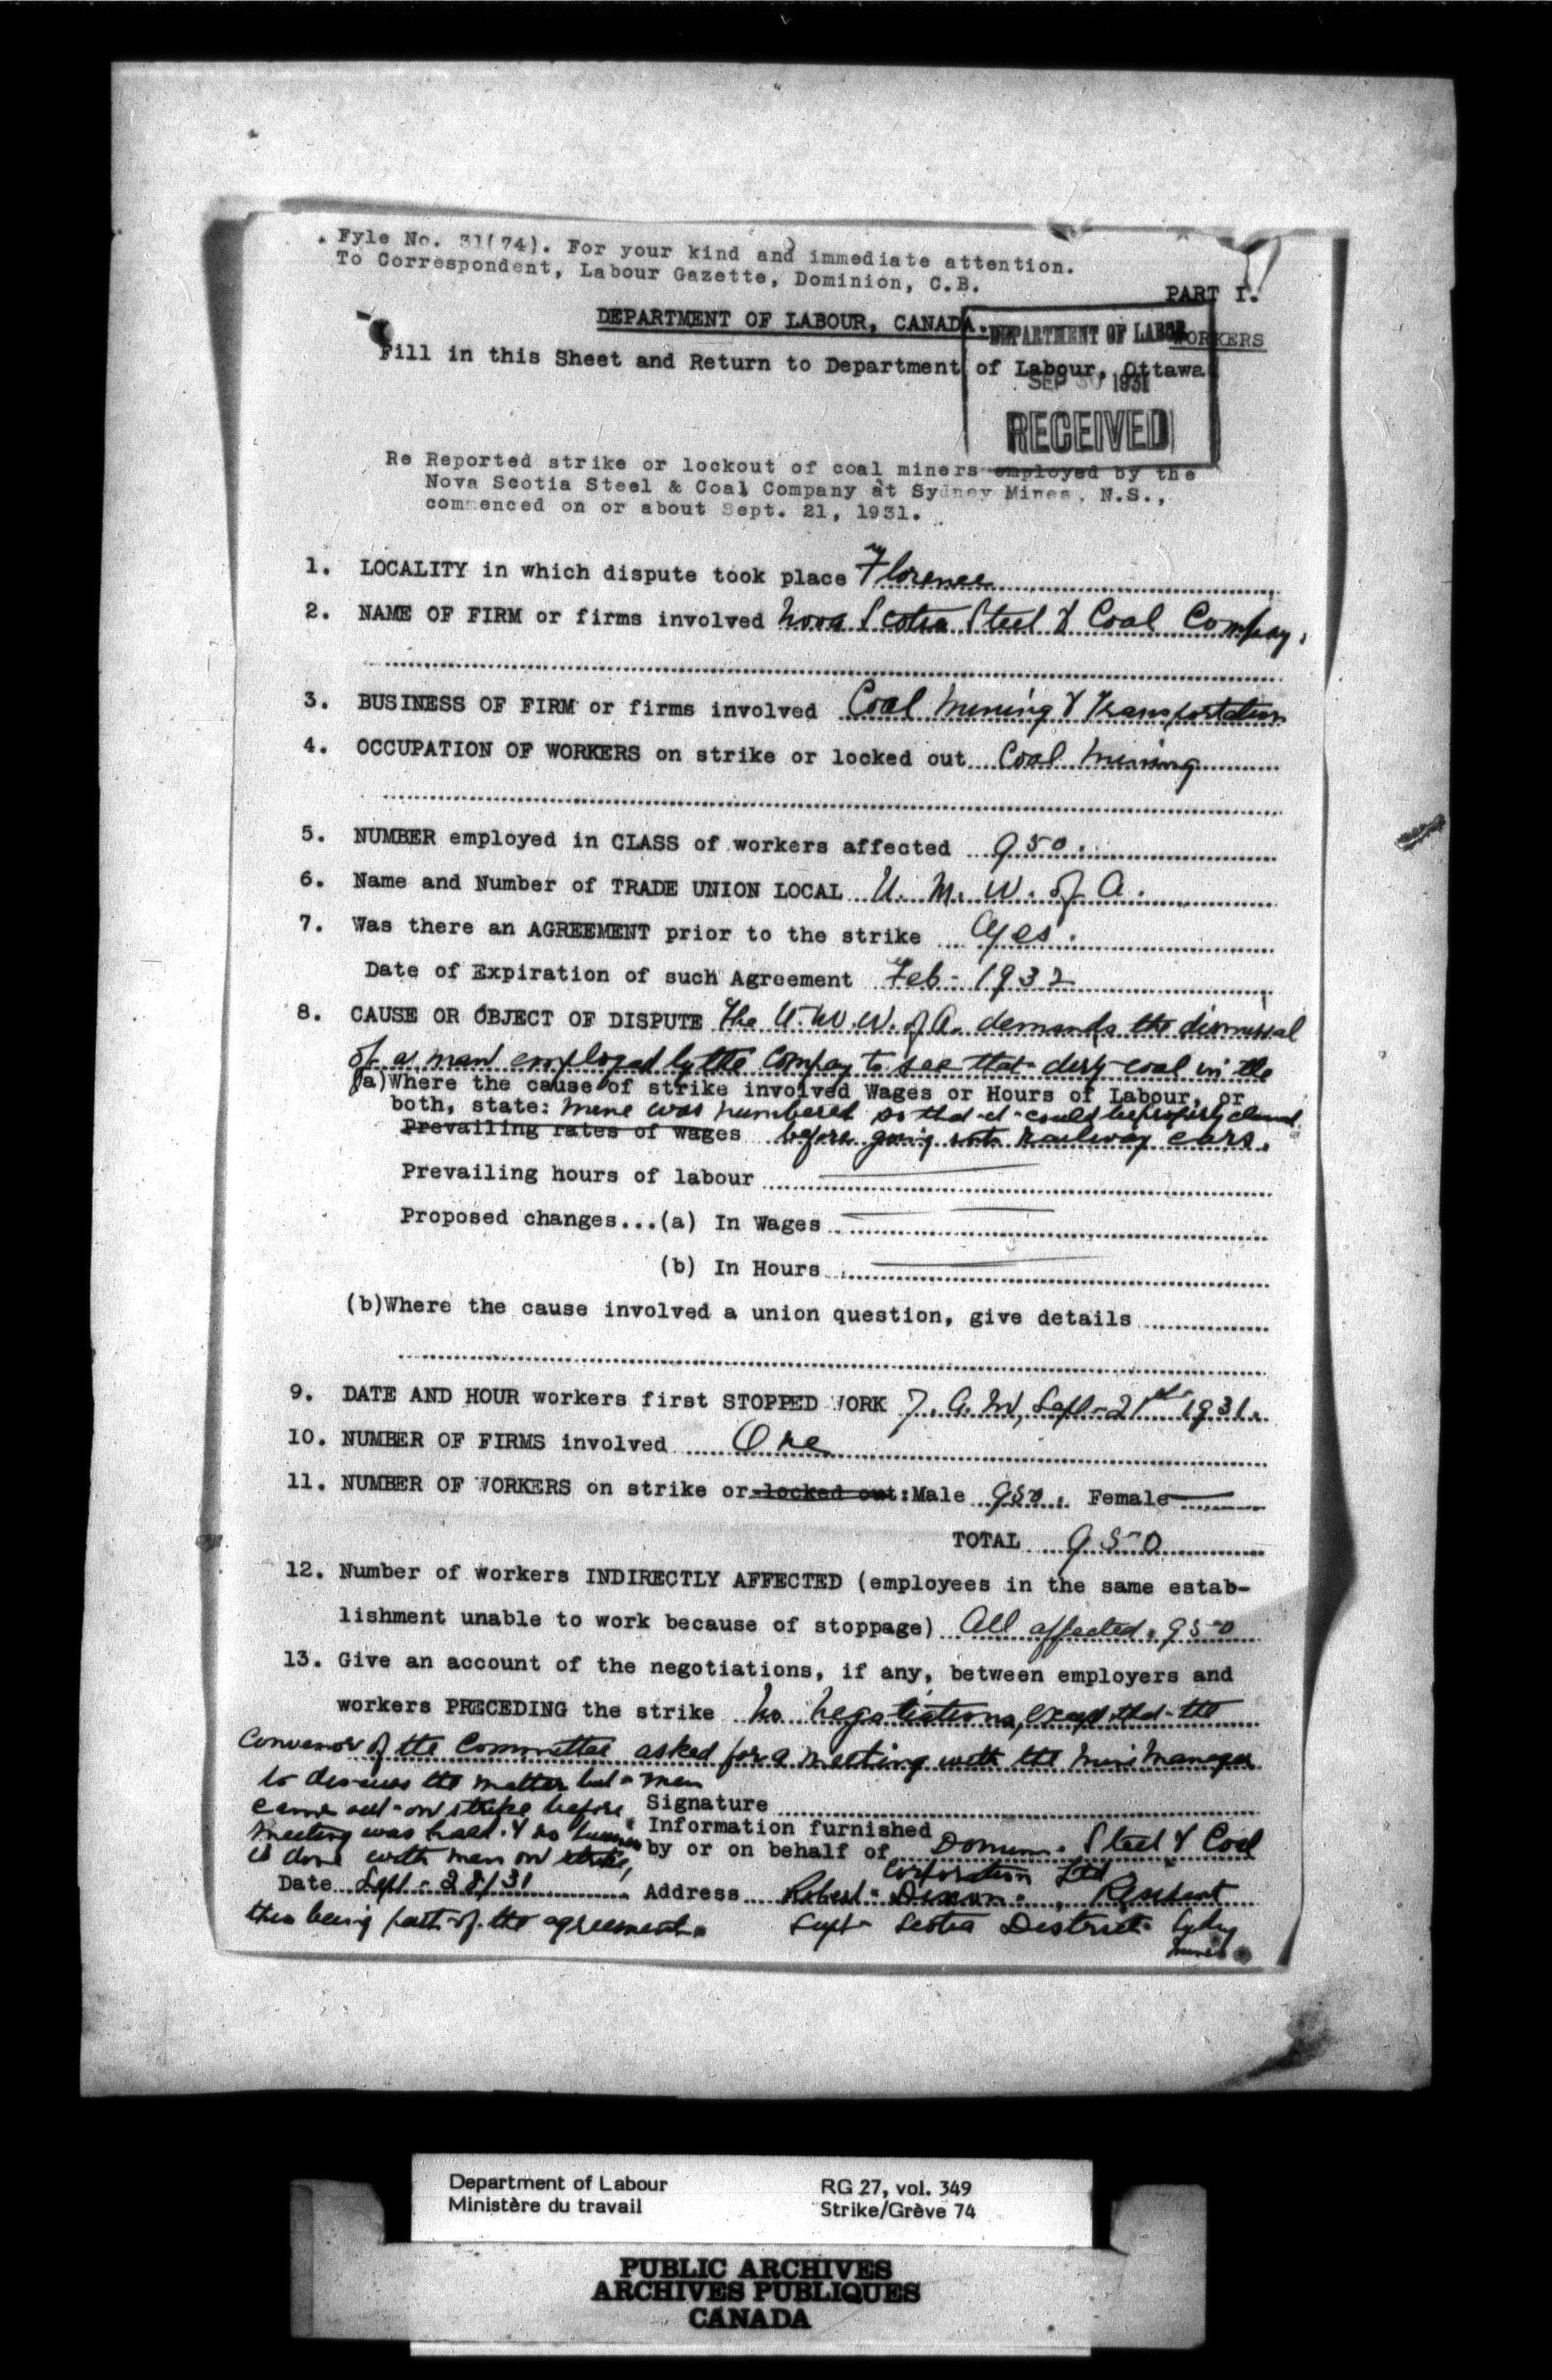 Fyle No. 31(74). For your kind and immediate attention.
To Correspondent, Labour Gazette, Dominion, C.B.
PART I.
DEPARTMENT OF LABOUR, CANADA.
WORKERS
Fill in this Sheet and Return to Department of Labour, Ottawa
DEPARTMENT OF LABOR
SEP 30 1931
RECEIVED
Re Reported strike or lockout of coal miners employed by the
Nova Scotia Steel & Coal Company at Sydney Mines, N.S.,
commenced on or about Sept. 21, 1931.
1. LOCALITY in which dispute took place Florence
2. NAME OF FIRM or firms involved Nova Scotia Steel & Coal Company.
3. BUSINESS OF FIRM or firms involved Coal Mining & Transportation
4. OCCUPATION OF WORKERS on strike or locked out Coal Mining
5. NUMBER employed in CLASS of workers affected 950.
6. Name and Number of TRADE UNION LOCAL U. M. W. of A.
7. Was there an AGREEMENT prior to the strike Yes.
Date of Expiration of such Agreement Feb - 1932
8. CAUSE OR OBJECT OF DISPUTE The U.M.W. of A. demands the dismissal
of a man employed by the Company to see that dirty coal in the
(a)Where the cause of strike involved Wages or Hours of Labour, or
both, state: mine was numbered so that it could be properly cleaned
Prevailing rates of wages before going into railway cars.
Prevailing hours of labour
Proposed changes...(a) In Wages
(b) In Hours
(b)Where the cause involved a union question, give details
9. DATE AND HOUR workers first STOPPED WORK 7. A. M, Sept - 21st 1931.
10. NUMBER OF FIRMS involved One
11. NUMBER OF WORKERS on strike or locked out: Male 950. Female
TOTAL 950
12. Number of workers INDIRECTLY AFFECTED (employees in the same estab-
lishment unable to work because of stoppage) All affected. 950
13. Give an account of the negotiations, if any, between employers and
workers PRECEDING the strike No negotiations, except that the
Convenor of the Committee asked for a meeting with the Mine Manager
to discuss the matter but men
came out on strike before
Signature
meeting was held. & no business
Information furnished
is done with men on strike,
by or on behalf of Dominion Steel & Coal
Corporation Ltd
Date Sept - 28/31 Address Robert Dixon, Resident
this being part of the agreement.
Supt Scotia District Sydney
Mines
Department of Labour
Ministère du travail
RG 27, vol. 349
Strike/Grève 74
PUBLIC ARCHIVES
ARCHIVES PUBLIQUES
CANADA